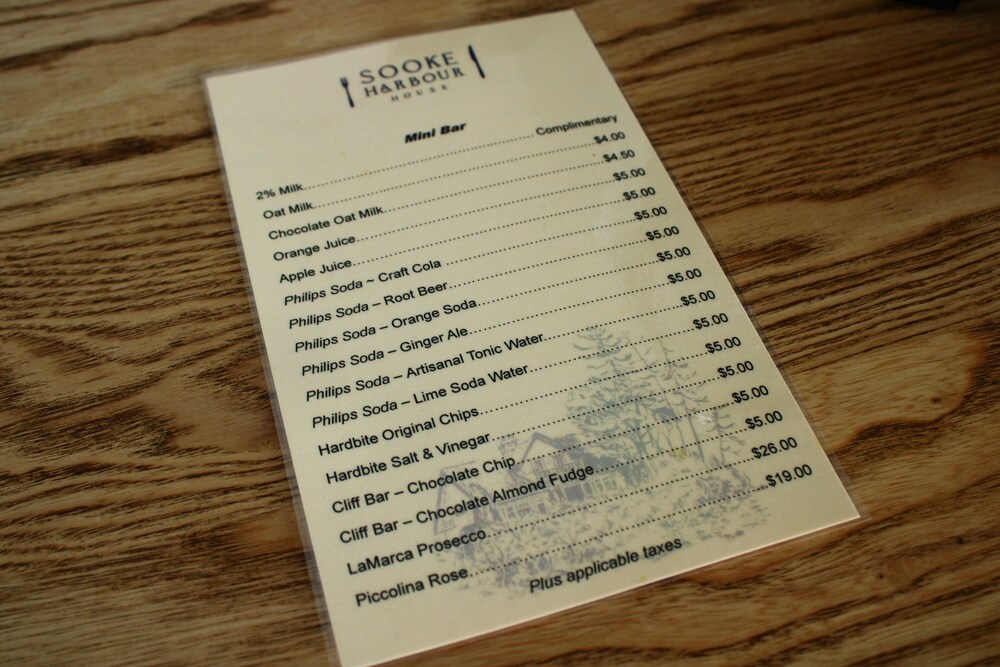 SOOKE
HARBOUR
HOUSE
Mini Bar
2% Milk........................................................ Complimentary
Oat Milk........................................................$4.00
Chocolate Oat Milk........................................................$4.50
Orange Juice........................................................$5.00
Apple Juice........................................................$5.00
Philips Soda ~ Craft Cola ........................................................$5.00
Philips Soda – Root Beer........................................................$5.00
Philips Soda – Orange Soda........................................................$5.00
Philips Soda – Ginger Ale........................................................$5.00
Philips Soda – Artisanal Tonic Water........................................................$5.00
Philips Soda – Lime Soda Water........................................................$5.00
Hardbite Original Chips........................................................$5.00
Hardbite Salt & Vinegar........................................................$5.00
Cliff Bar – Chocolate Chip........................................................$5.00
Cliff Bar – Chocolate Almond Fudge........................................................$5.00
LaMarca Prosecco........................................................$26.00
Piccolina Rose........................................................$19.00
Plus applicable taxes